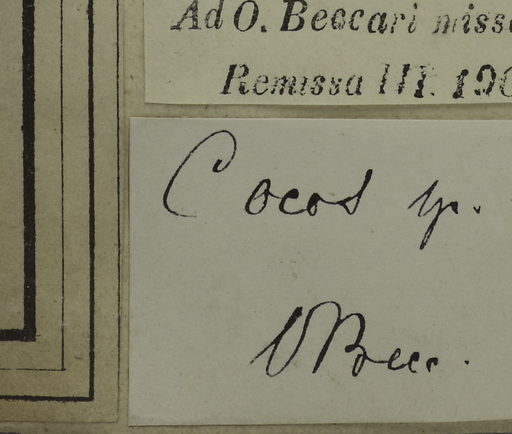 Ad O. Beccari miss
Remissa III. 190
Cocos sp.
O Becc.